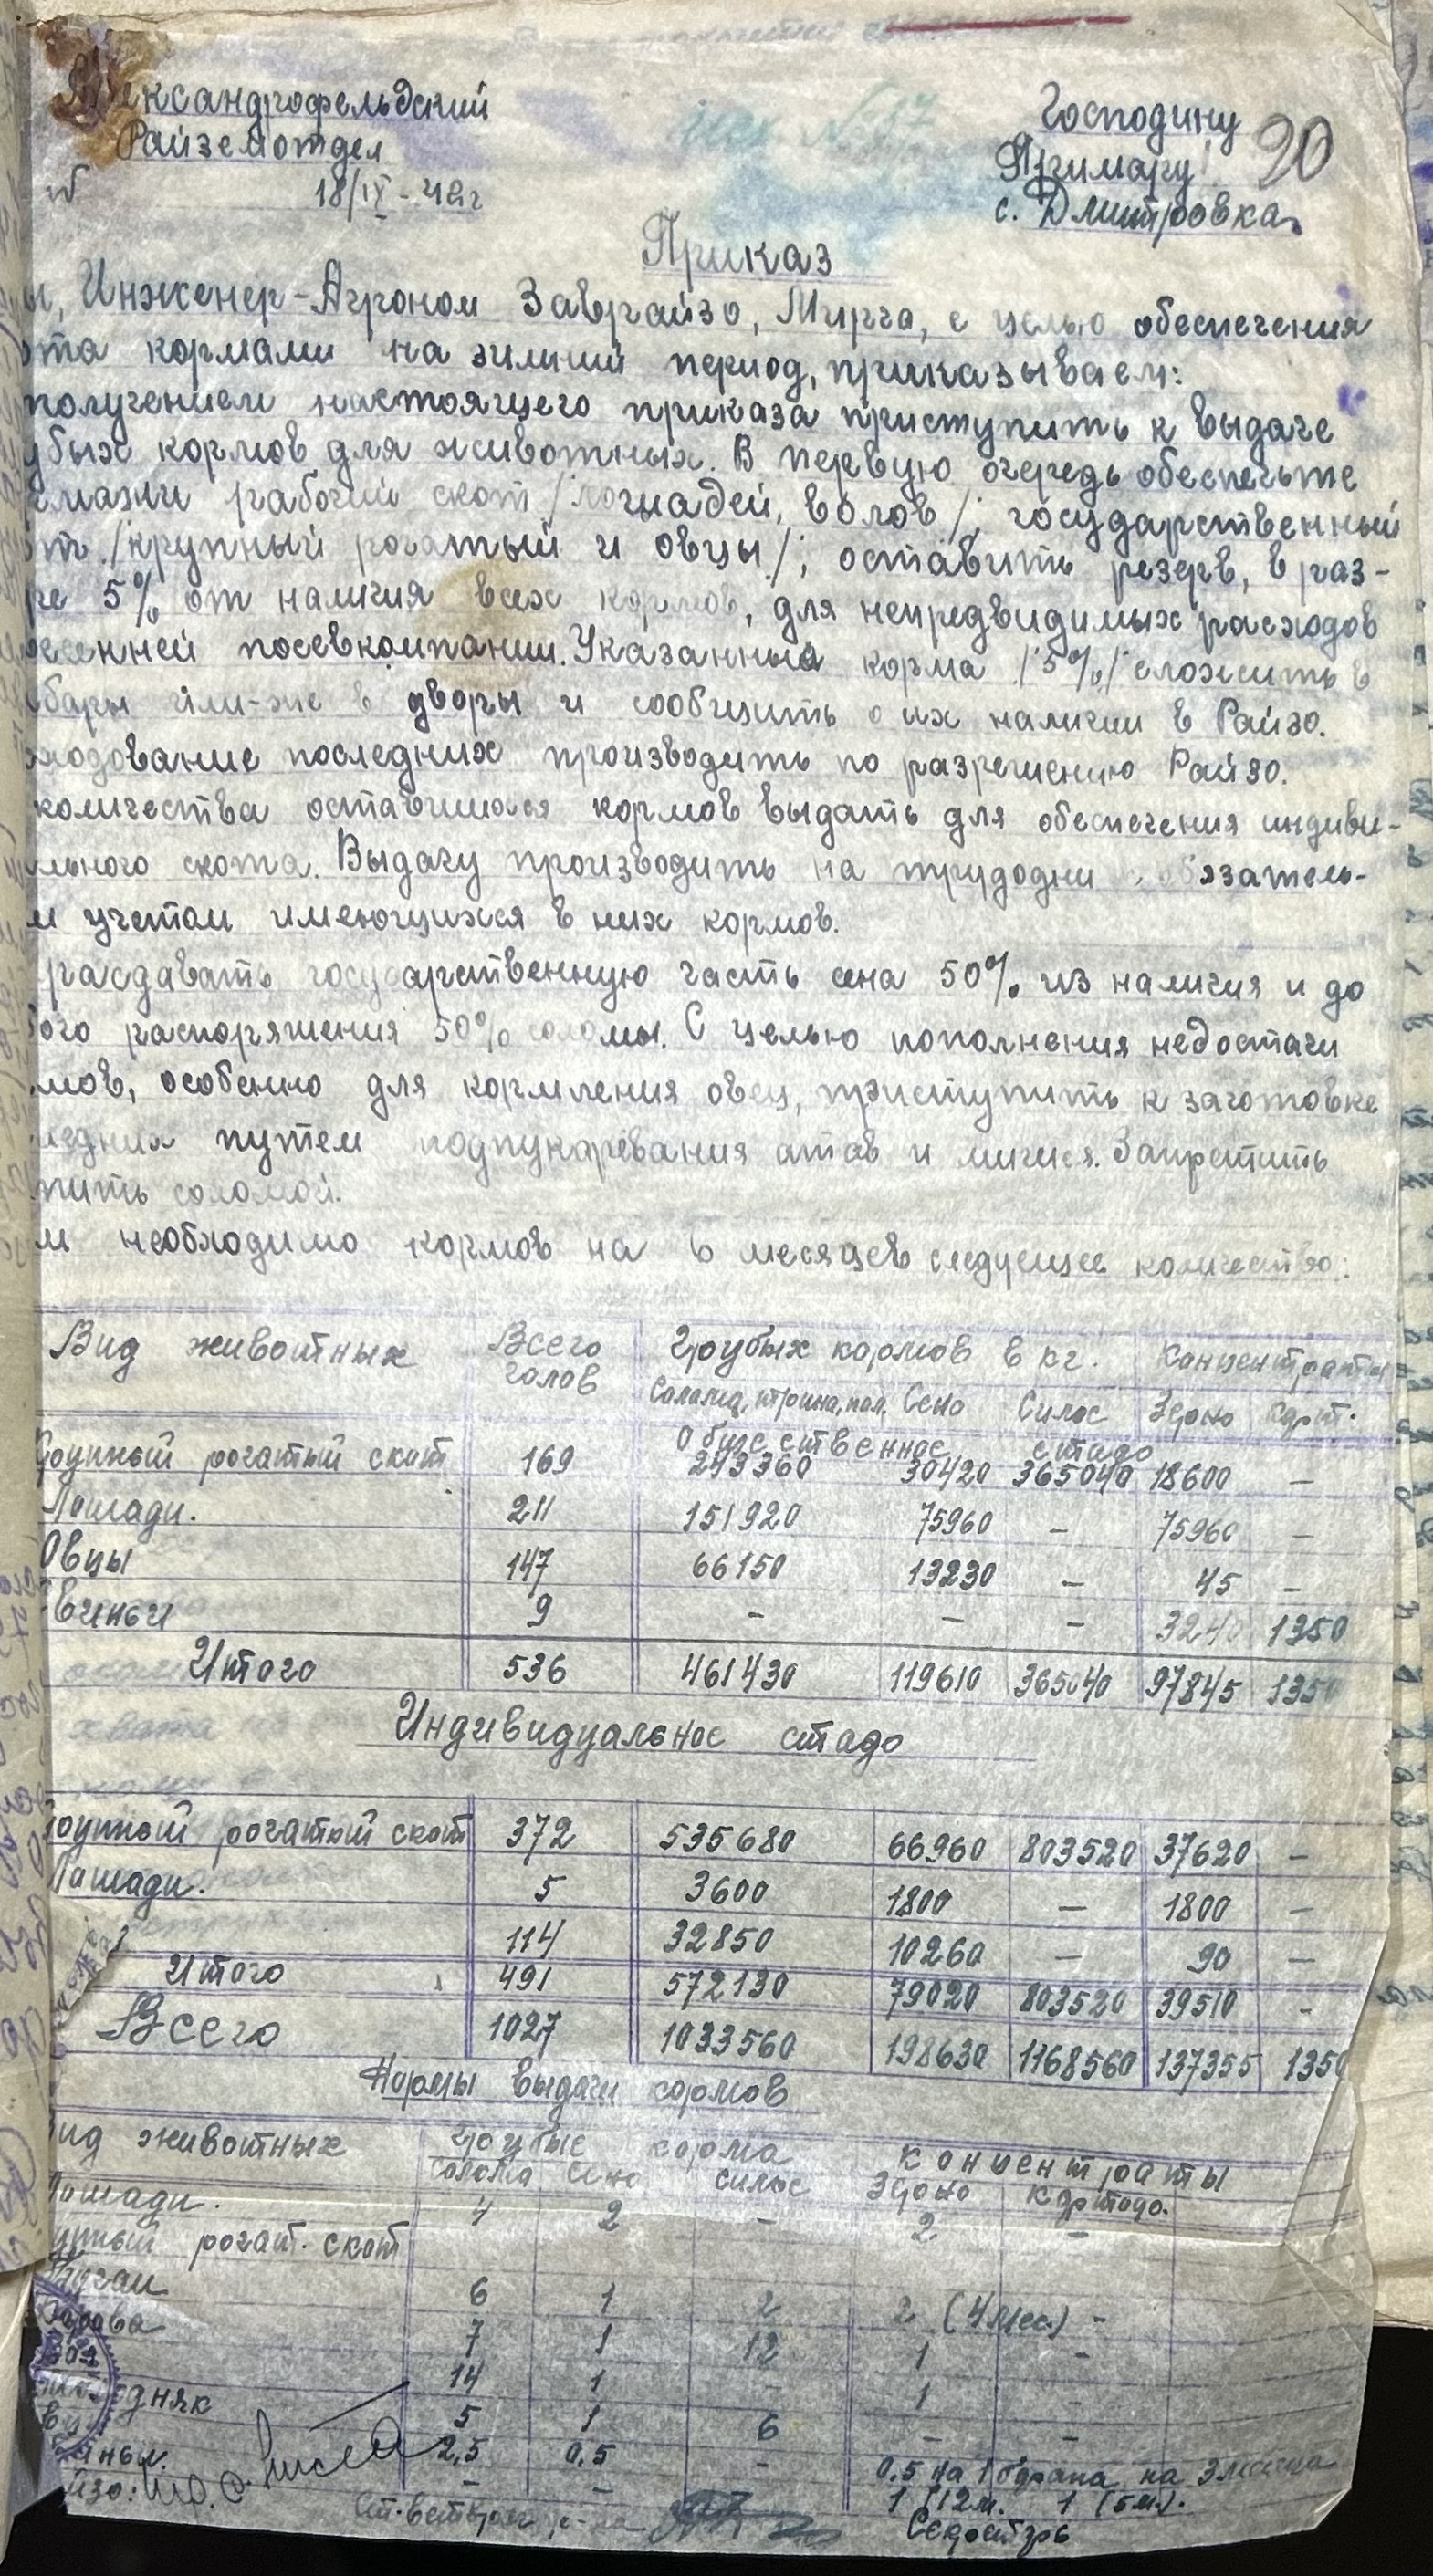 Александрофельдский
Райземотдел
№
18/IX - 42 г
Господину
Примару
с. Дмитровка
90
Приказ
ы, Инженер-Агроном Заврайзо, Мирга, с целью обеспечения
ота кормами на зимний период, приказываем:
получением настоящего приказа приступить к выдаче
убых кормов для животных. В первую очередь обеспечьте
рабочий скот /лошадей, волов/; государственный
от /крупный рогатый и овцы/; оставить резерв, в раз-
ре 5% от наличия всех кормов, для непредвидимых расходов
весенней посевкомпании. Указанный корма /5%/ сложить в
бары или-же в дворы и сообщить о их наличии в Райзо.
ходование последних производить по разрешению Райзо.
количества оставшихся кормов выдать для обеспечения индиви-
льного скота. Выдачу производить на трудодни с обязатель-
м учетом имеющихся в них кормов.
раздавать государственную часть сена 50% из наличия и до
ого распоряжения 50% соломы. С целью пополнения недостачи
мов, особенно для кормления овец, приступить к заготовке
ледних путем Запретить
пить соломой.
м необходимо кормов на 6 месяцев следующее количество:
Вид животных Всего голов Грубых кормов в кг. Концентраты
Солома, Сено Силос Зерно карт.
Общественное стадо
Крупный рогатый скот 169 243360 30420 365040 18600 -
Лошади. 211 151920 75960 - 75960 -
Овцы 147 66150 13230 - 45 -
виньи 9 - - - 3240 1350
Итого 536 461430 119610 365040 97845 1350
Индивидуальное стадо
рупный рогатый скот 372 535680 66960 803520 37620 -
Лошади. 5 3600 1800 - 1800 -
114 32850 10260 - 90 -
Итого 491 572130 79020 803520 39510 -
Всего 1027 1033560 198630 1168560 137355 1350
Нормы выдачи кормов
ид животных Грубые корма Концентраты
солома сено силос Зерно картофо.
Лошади. 4 2 - 2 -
упный рогат. скот
6 1 2 2 (4 мес.) -
Корова 7 1 12 1 -
14 1 - 1 -
дняк 5 1 6 - -
2,5 0,5 - 0,5 на 1 барана на 3 месяца
иньи. - - 1 (12 м. 1 (5 м.).
йзо:
ст. ветврач р-на